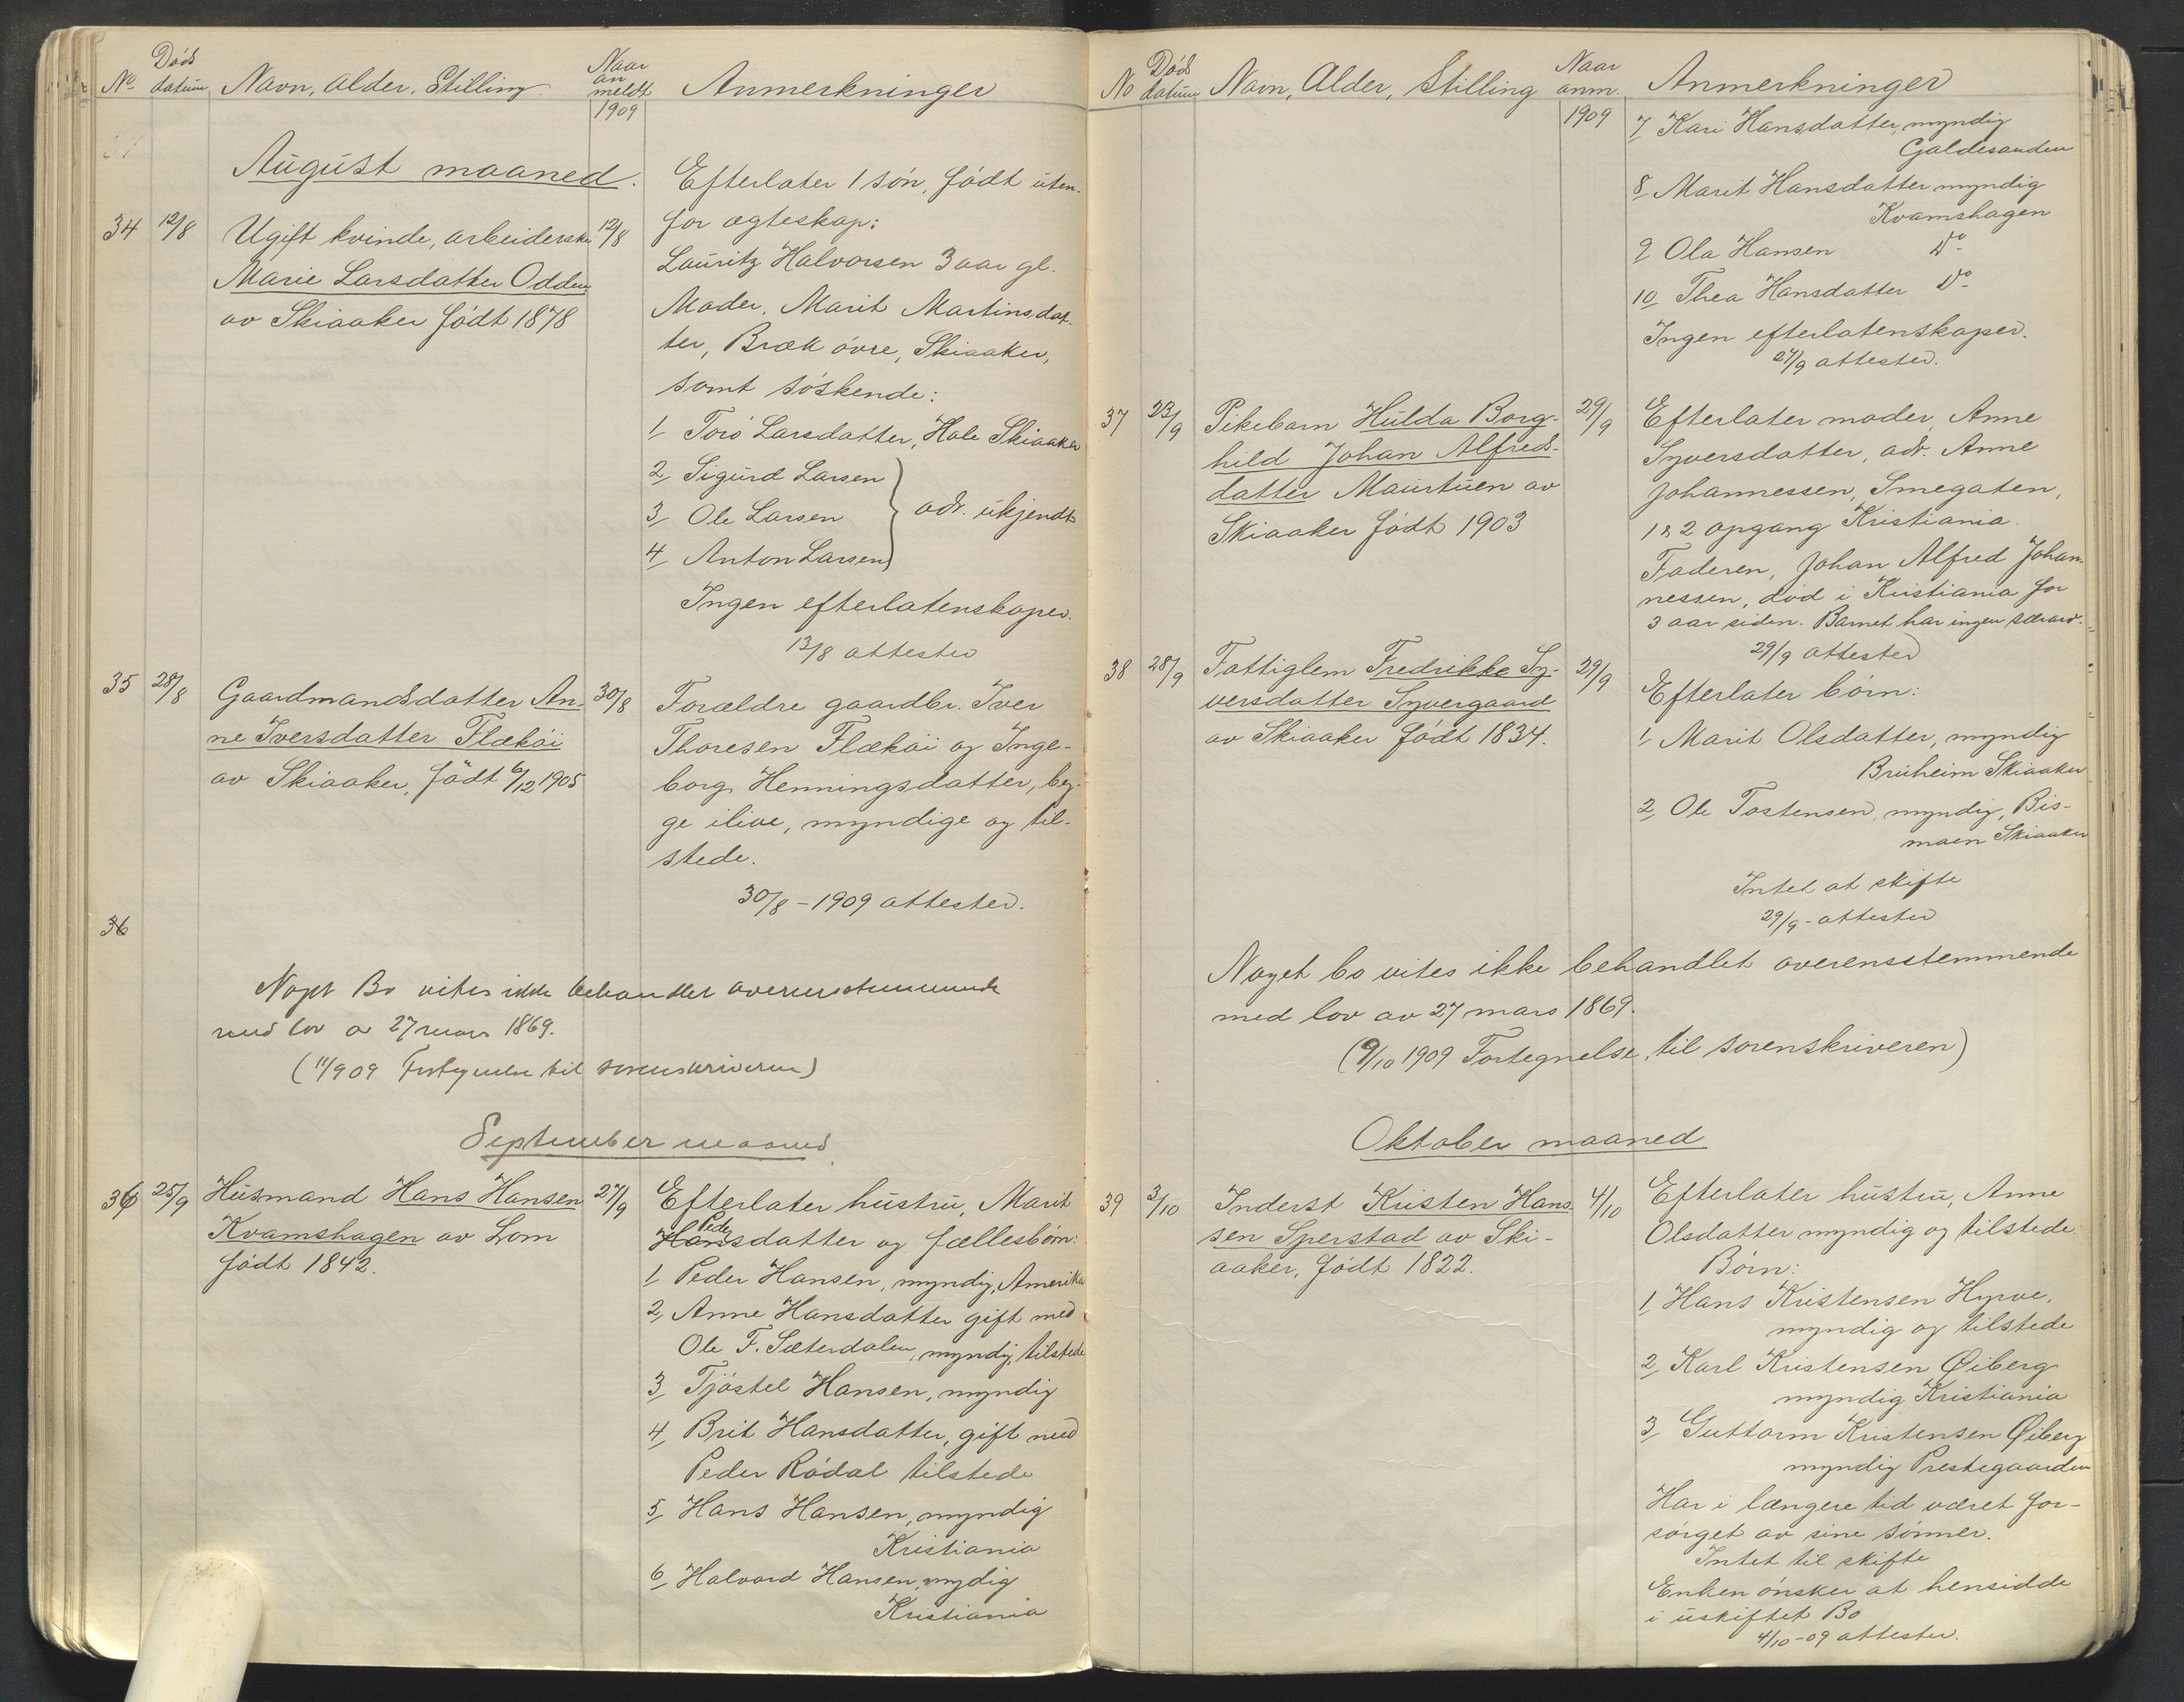 No Döds datum Navn, alder, Stilling. Naar anmeldt Anmerkninger
1909
August maaned.
34 12/8 Ugift kvinde, arbeiderske
Marie Larsdatter Odden
av Skiaaker født 1878
12/8
Efterlater 1 søn, født uten-
for ægteskap:
Lauritz Halvorsen 3 aar gl.
Moder, Marit Martinsdat-
ter, Bræk øvre, Skiaaker,
samt søskende:
1, Toro Larsdatter, Hole Skiaaker
2, Sigurd Larsen
3, Ole Larsen } adr. ukjendt
4, Anton Larsen
Ingen efterlatenskaper.
13/8 attester
35 28/8 Gaardmandsdatter An-
ne Iversdatter Flækøi
av Skiaaker, født 6/12 1905
30/8
Forældre gaardbr. Iver
Thoresen Flækøi og Inge-
borg Henningsdatter, beg-
ge ilive, myndige og til-
stede.
30/8 - 1909 attester.
36
Noget Bo vites ikke behandlet overensstemmende
med lov av 27 mars 1869.
(1/9 09 Fortegnelse til sorenskriveren)
September maaned
36 25/9 Husmand Hans Hansen
Kvamshagen av Lom
født 1842.
27/9
Efterlater hustru, Marit
Peds
Hansdatter og fællesbørn:
1, Peder Hansen, myndig, Amerika
2, Anne Hansdatter gift med
Ole F. Sæterdalen, myndig, tilstede
3, Tjøstel Hansen, myndig
4, Brit Hansdatter, gift med
Peder Rødal tilstede
5, Hans Hansen, myndig
Kristiania
6, Halvard Hansen, mydig
Kristiania
No Död datum Navn, Alder, Stilling Naar anm. Anmerkninger
1909
7, Kari Hansdatter, myndig
Galdesanden
8, Marit Hansdatter myndig
Kvamshagen
9, Ola Hansen Do
10, Thea Hansdatter Do
Ingen efterlatenskaper.
27/9 attester.
37 23/9 Pikebarn Hulda Borg-
hild Johan Alfreds-
datter Maurtuen av
Skiaaker født 1903
29/9
Efterlater moder, Anne
Syversdatter, adr. Anne
Johannessen, Smegaten,
12, 2 opgang Kristiania.
Faderen, Johan Alfred Johan-
nessen, død i Kristiania for
3 aar siden. Barnet har ingen særarv.
29/9 attester
38 28/9 Fattiglem Fredrikke Sy-
versdatter Syvergaard
av Skiaaker født 1834.
29/9
Efterlater børn:
1, Marit Olsdatter, myndig
Bruheim Skiaaker
2, Ole Tostensen, myndig, Bis-
moen Skiaaker
Intet at skifte
29/9 - attester
Noget bo vites ikke behandlet overensstemmende
med lov av 27 mars 1869.
(9/10 1909 Fortegnelse til sorenskriveren)
Oktober maaned
39 3/10 Inderst Kristen Han-
sen Sperstad av Ski-
aaker, født 1822.
4/10
Efterlater hustru, Anne
Olsdatter myndig og tilstede.
Børn:
1, Hans Kristensen Hyrve,
myndig og tilstede
2, Karl Kristensen Øiberg
myndig Kristiania
3, Guttorm Kristensen Øiberg
myndig Prestegaarden
Har i længere tid været for-
sørget av sine sønner.
Intet til skifte
Enken ønsker at hensidde
i uskiftet Bo
4/10 - 09 attester.